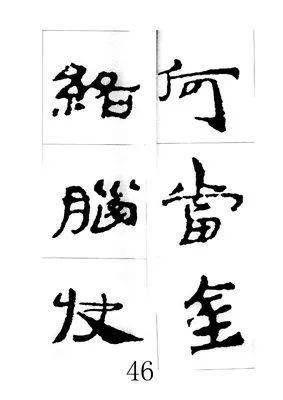 何當金
絡腦快
46